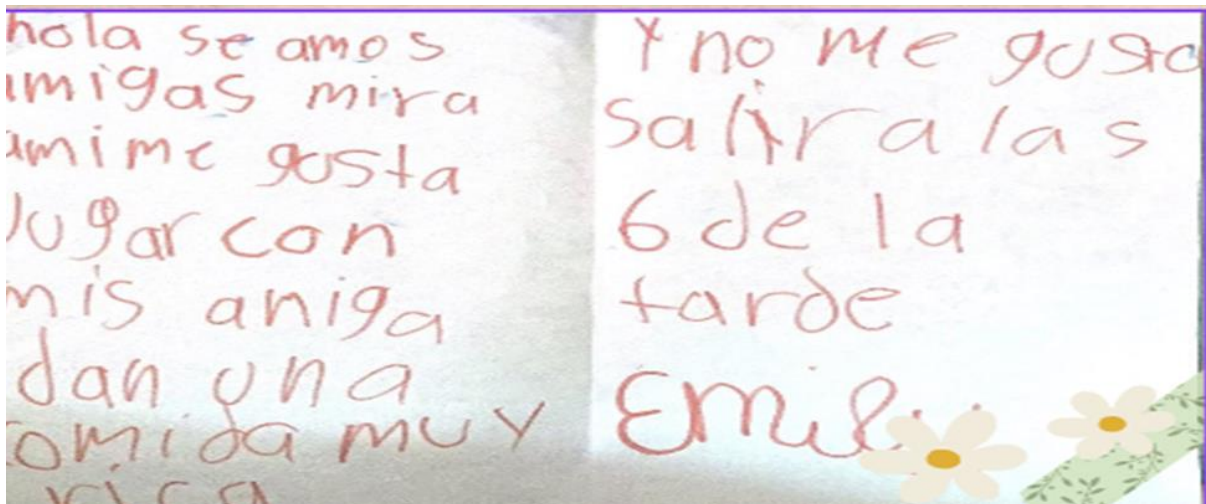 hola se amos
amigas mira
amime gusta
Jugar con
mis aniga
dan una
comida muy
rica
Y no me gusta
salir a las
6 de la
tarde